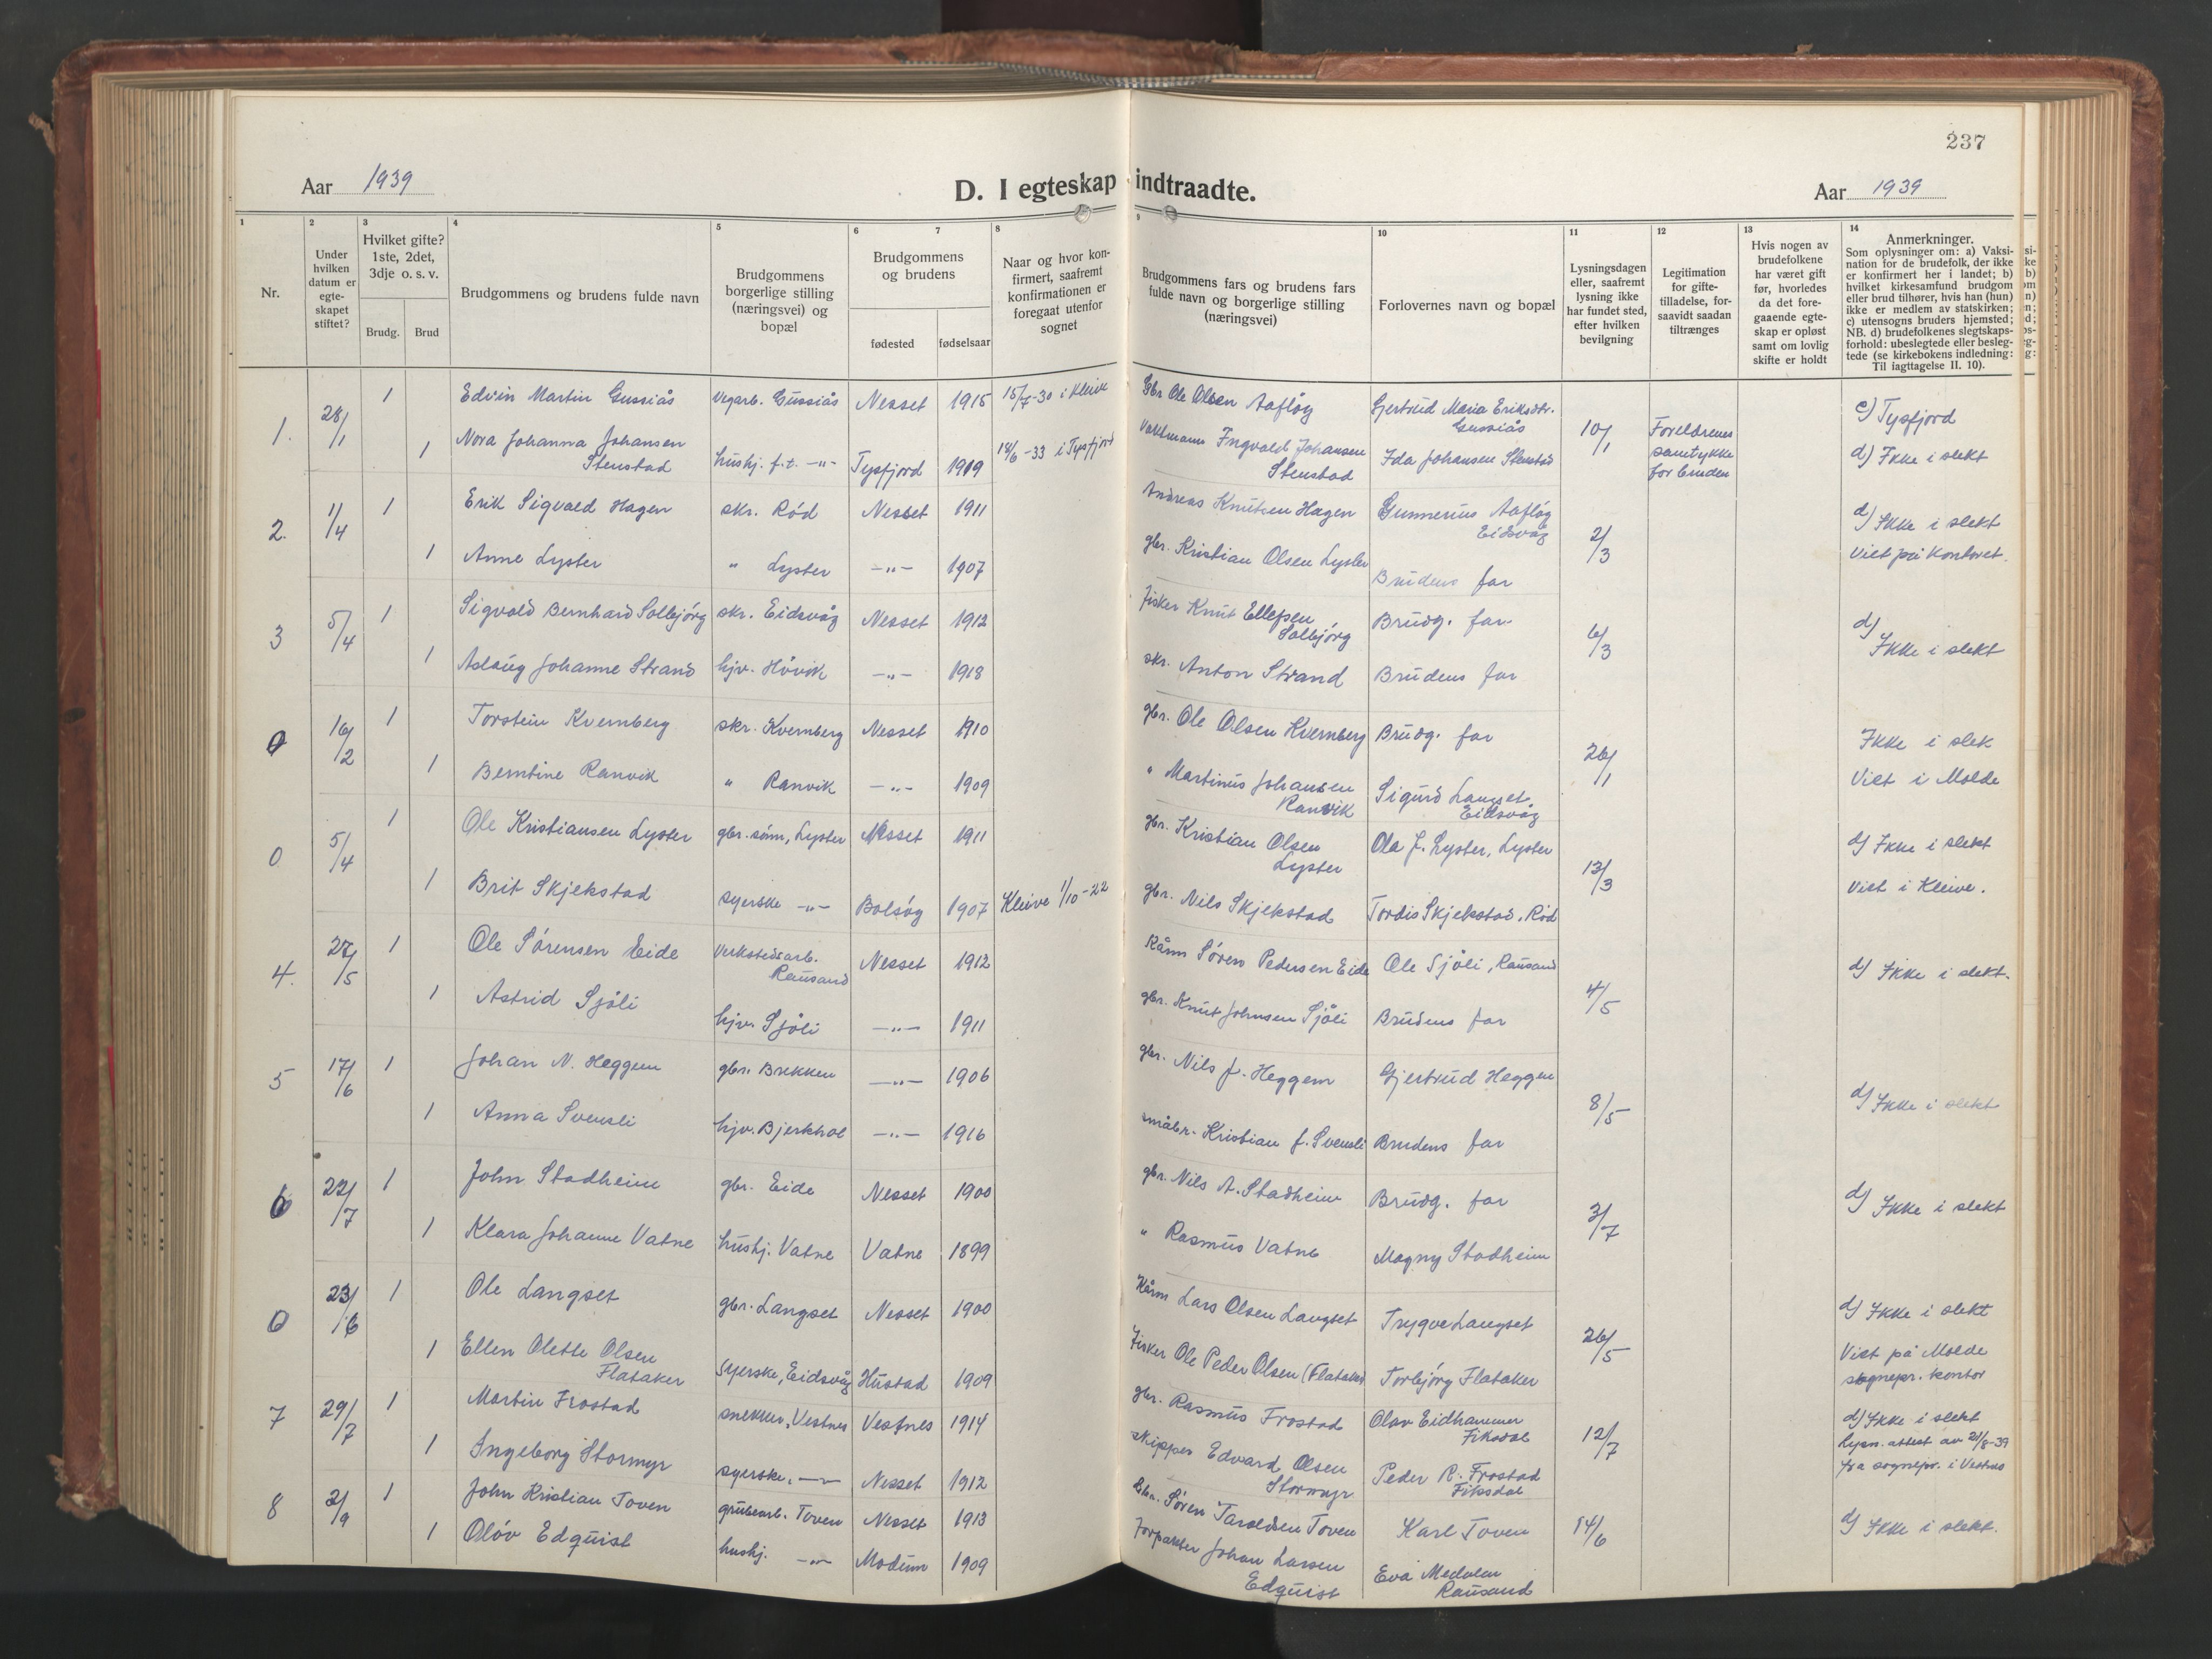 237
Aar 1939
D. I egteskap indtraadte.
Aar 1939
1
2
3
4
5
6
7
8
9
10
11
12
13
14
Nr.
Under
hvilken
datum er
egte-
skapet
stiftet?
Hvilket gifte?
1ste, 2det,
3dje o. s. v.
Brudg.
Brud
Brudgommens og brudens fulde navn
Brudgommens
borgerlige stilling
(næringsvei) og
bopæl
Brudgommens
og brudens
fødested
fødselsaar
Naar og hvor kon-
firmert, saafremt
konfirmationen er
foregaat utenfor
sognet
Brudgommens fars og brudens fars
fulde navn og borgerlige stilling
(næringsvei)
Forlovernes navn og bopæl
Lysningsdagen
eller, saafremt
lysning ikke
har fundet sted,
efter hvilken
bevilgning
Legitimation
for gifte-
tilladelse, for-
saavidt saadan
tiltrænges
Hvis nogen av
brudefolkene
har været gift
før, hvorledes
da det fore-
gaaende egte-
skap er opløst
samt om lovlig
skifte er holdt
Anmerkninger.
Som oplysninger om: a) Vaksi-
nation for de brudefolk, der ikke
er konfirmert her i landet; b)
hvilket kirkesamfund brudgom
eller brud tilhører, hvis han (hun)
ikke er medlem av statskirken;
c) utensogns bruders hjemsted;
NB. d) brudefolkenes slegtskaps-
forhold: ubeslegtede eller besleg-
tede (se kirkebokens indledning:
Til iagttagelse II. 10).
1. 28/1 1 Edvin Martin Gussiås Vegarb. Gussiås Nesset 1915 15/7-30 i Kleive Gbr Ole Olsen Aafløg Gjertrud Maria Eriksdtr. Gussiås 10/1 Foreldrenes samtykke for bruden c) Tysfjord
1 Nora Johanna Johansen Stenstad hushj. f.t. -"- Tysfjord 1919 18/6-33 i Tysfjord Ingvald Johansen Stenstad Ida Johansen Stenstad d) Ikke i slekt
2. 1/4 1 Erik Sigvald Hagen skr. Rød Nesset 1911 Andreas Knutsen Hagen Gunnerius Aafløg Eidsvåg 2/3 d) Ikke i slekt
1 Anne Lyster " Lyster -"- 1907 gbr. Kristian Olsen Lyster Brudens far Viet på Kontoret.
3 5/4 1 Sigvald Bernhard Solbjørg skr. Eidsvåg Nesset 1912 Fisker Knut Ellefsen Solbjørg Brudg. far 6/3 d) Ikke i slekt
1 Aslaug Johanne Strand hjv. Høvik -"- 1918 skr. Anton Strand Brudens far
0 16/2 1 Torstein Kvernberg skr. Kvernberg Nesset 1910 gbr. Ole Olsen Kvernberg Brudg. far 26/1 Ikke i slek
1 Berntine Ranvik " Ranvik -"- 1909 " Martinus Johansen Ranvik Sigurd Langset Eidsvåg Viet i Molde
0 5/4 1 Ole Kristiansen Lyster gbr. sønn, Lyster Nesset 1911 gbr. Kristian Olsen Lyster Ola J. Lyster, Lyster 13/3 d) Ikke i slekt
1 Brit Skjekstad syerske -"- Bolsøy 1907 Kleive 1/10-22 gbr. Nils Skjekstad Tordis Skjekstad, Rød Viet i Kleive.
4. 27/5 1 Ole Sørensen Eide Verkstedsarb. Rausand Nesset 1912 Kårm Søren Pedersen Eide Ole Sjøli, Rausand 4/5 d) Ikke i slekt.
1 Astrid Sjøli hjv. Sjøli -"- 1911 gbr. Knut Johnsen Sjøli Brudens far
5 17/6 1 Johan N. Heggem gbr. Brekken -"- 1906 gbr. Nils J. Heggem Gjertrud Heggem 8/5 d) Ikke i slekt
1 Anna Svensli hjv. Bjerkhol -"- 1916 småbr. Kristian J. Svensli Brudens far
6 22/7 1 John Stadheim gbr. Eide Nesset 1900 gbr. Nils A. Stadheim Brudg. far 3/7 d) Ikke i slekt
1 Klara Johanne Vatne hushj. Vatne Vatne 1899 " Rasmus Vatne Magny Stadheim
0 23/6 1 Ole Langset gbr. Langset Nesset 1900 Kårm Lars Olsen Langset Trygve Langset 26/5 d) Ikke i slekt
1 Ellen Olette Olsen Flataker syerske, Eidsvåg Hustad 1909 Fisker Ole Peder Olsen (Flataker) Torbjørg Flataker Viet på Molde sognepr. kontor
7 29/7 1 Martin Frostad snekker, Vestnes Vestnes 1914 gbr. Rasmus Frostad Olav Eidhammer Fiksdal 12/7 d) Ikke i slekt
1 Ingeborg Stormyr syerske, -"- Nesset 1912 skipper Edvard Olsen Stormyr Peder R. Frostad Fiksdal lysn. attest av 21/8-39 fra sognepr. i Vestnes
8 2/9 1 John Kristian Toven grubearb. Toven Nesset 1913 Gbr. Søren Taraldsen Toven Karl Toven 14/6 d) Ikke i slekt.
1 Oløv Edquist hushj. -"- Modum 1909 Forpakter Johan Larsen Edquist Eva Medalen Rausand